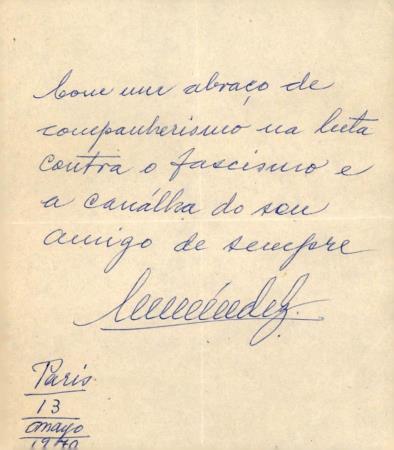 Com um abraço de
companherismo na luta
contra o fascismo e
a canálha do seu
amigo de sempre
Paris
13
mayo
1970